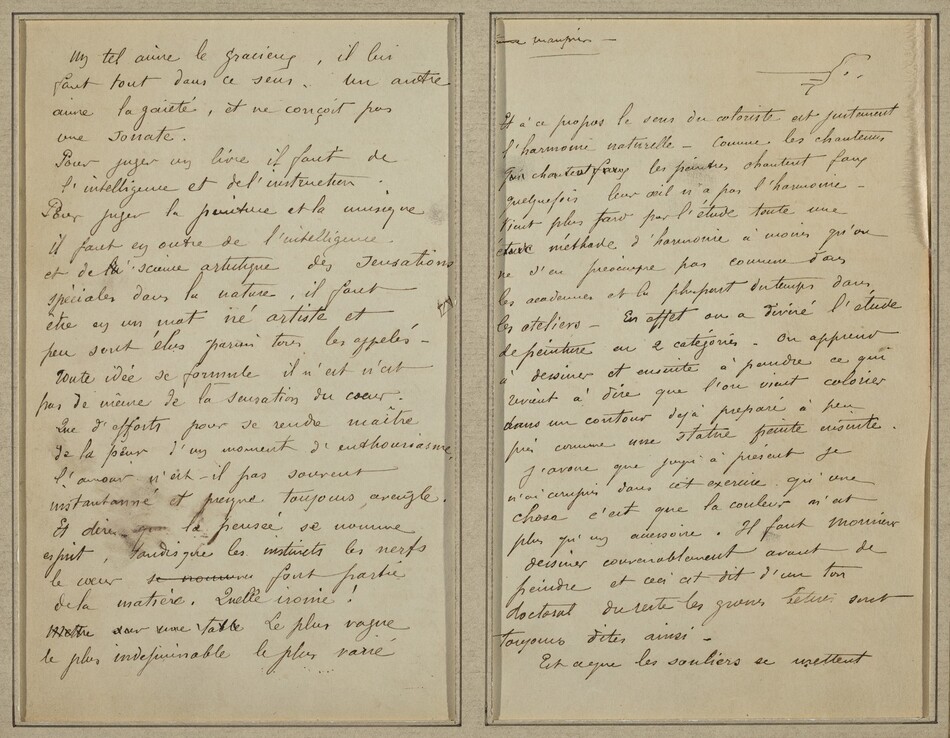 Un tel aime le gracieux, il lui
faut tout dans ce sens. Un autre
aime la gaiété, et ne conçoit pas
une sonate.
Pour juger un livre il faut de
l'intelligence et de l'instruction.
Pour juger la peinture et la musique
il faut en outre de l'intelligence
et de la science artistique des sensations
spéciales dans la nature, il faut
être en un mot né artiste et
peu sont élus parmi tous les appelés -
Toute idée se formule il n'est n'est
pas de même de la sensation du cœur.
Que d'efforts pour se rendre maître
de la peur d'un moment d'enthousiasme,
l'amour n'est-il pas souvent
instantanné et presque toujours aveugle.
Et dire que la pensée se nomme
esprit, tandisque les instincts les nerfs
le cœur se nomme font partie
de la matière. Quelle ironie !
Mettre sur une table Le plus vague
le plus indefinissable le plus varié
Et à ce propos le sens du coloriste est justement
l'harmonie naturelle - Comme les chanteurs
les peintres chantent faux
quelquefois leur œil n'a pas l'harmonie -
Vient plus tard par l'étude toute une
méthode d'harmonie à moins qu'on
ne s'en préoccupe pas comme dans
les academies et la plupart du temps dans
les ateliers - En effet on a divisé l'étude
de peinture en 2 catégories. On apprend
à dessiner et ensuite à peindre ce qui
revient à dire que l'on vient colorier
dans un contour dejà preparé à peu
près comme une statue peinte ensuite.
J'avoue que jusqu'à présent je
n'ai compris dans cet exercice qu'une
chose c'est que la couleur n'est
plus qu'un accessoire. Il faut Monsieur
dessiner convenablement avant de
peindre et ceci est dit d'un ton
doctoral du reste les grosses betises sont
toujours dites ainsi -
Est ce que les souliers se mettent